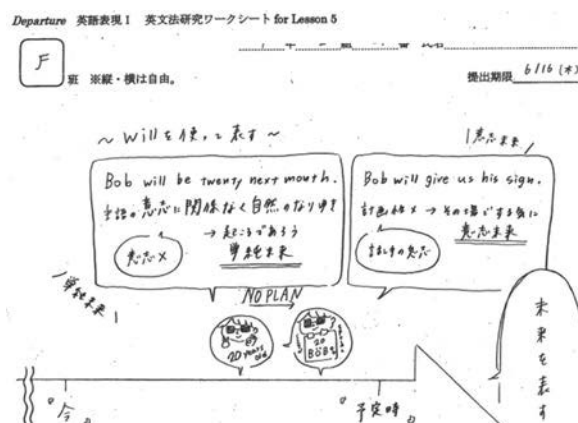 Departure 英語表現 I 英文法研究ワークシート for Lesson 5
F
班 ※縦・横は自由。
提出期限 6/16 (木)
~ Willを使って表す ~
意志未来
Bob will be twenty next month.
主語の意志に関係なく自然のなりゆき
→ 起こるであろう
単純未来
意志×
Bob will give us his sign.
計画性× → その場でする気に
意志未来
話し手の意志
単純未来
NO PLAN
20 years old
20
BOB
未来を表す
『今』
『予定時』